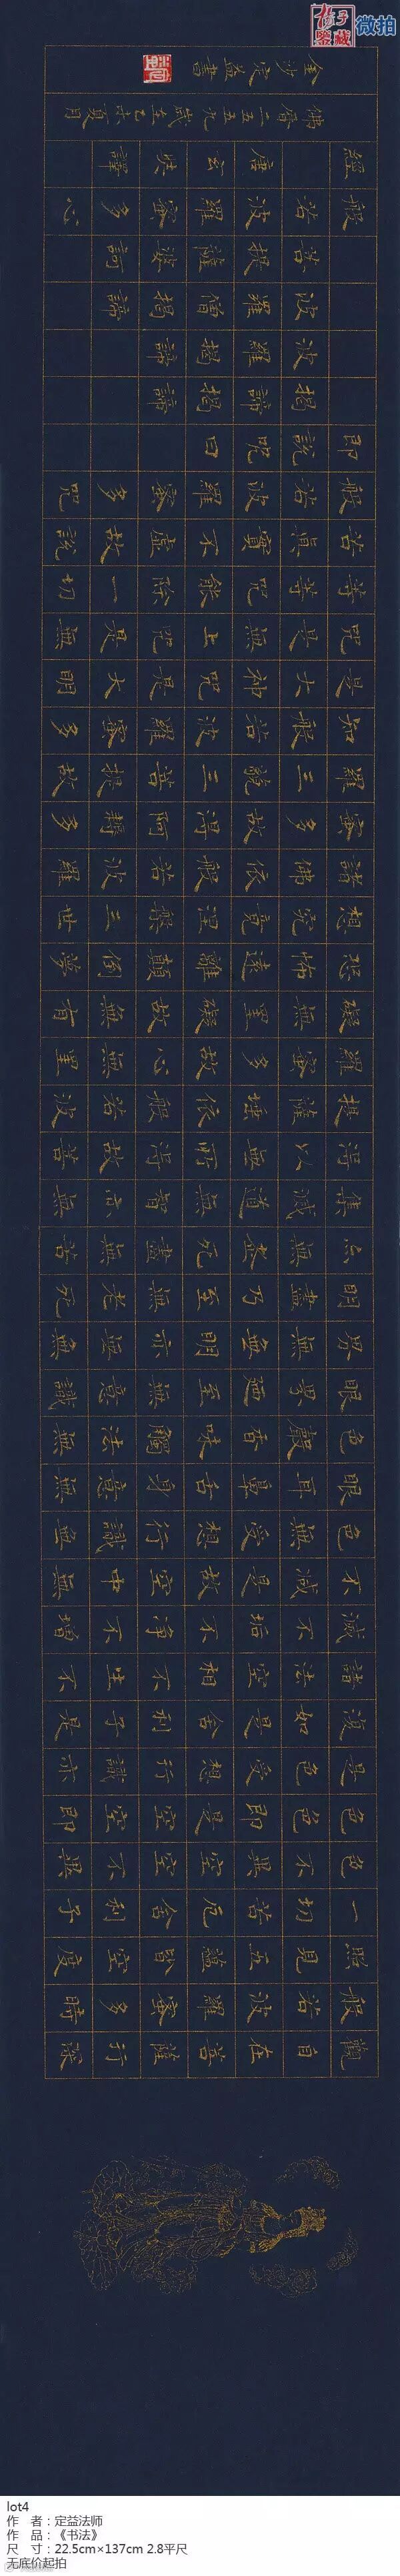 觀自在菩薩行深
般若波羅蜜多時
照見五蘊皆空度
一切苦厄舍利子
色不異空空不異
色色即是空空即
是色受想行識亦
復如是舍利子是
諸法空相不生不
滅不垢不淨不增
不減是故空中無
色無受想行識無
眼耳鼻舌身意無
色聲香味觸法無
眼界乃至無意識
界無無明亦無無
明盡乃至無老死
亦無老死盡無苦
集滅道無智亦無
得以無所得故菩
提薩埵依般若波
羅蜜多故心無罣
礙無罣礙故無有
恐怖遠離顛倒夢
想究竟涅槃三世
諸佛依般若波羅
蜜多故得阿耨多
羅三藐三菩提故
知般若波羅蜜多
是大神咒是大明
咒是無上咒是無
等等咒能除一切
苦真實不虛故說
般若波羅蜜多咒
即說咒曰
揭諦揭諦
波羅揭諦
波羅僧揭諦
菩提薩婆訶
般若波羅蜜多心
經 唐玄奘譯
佛曆二五五九歲在乙未夏月
金沙定益書
微拍
lot4
作 者：定益法师
作 品：《书法》
尺 寸：22.5cm×137cm 2.8平尺
无底价起拍